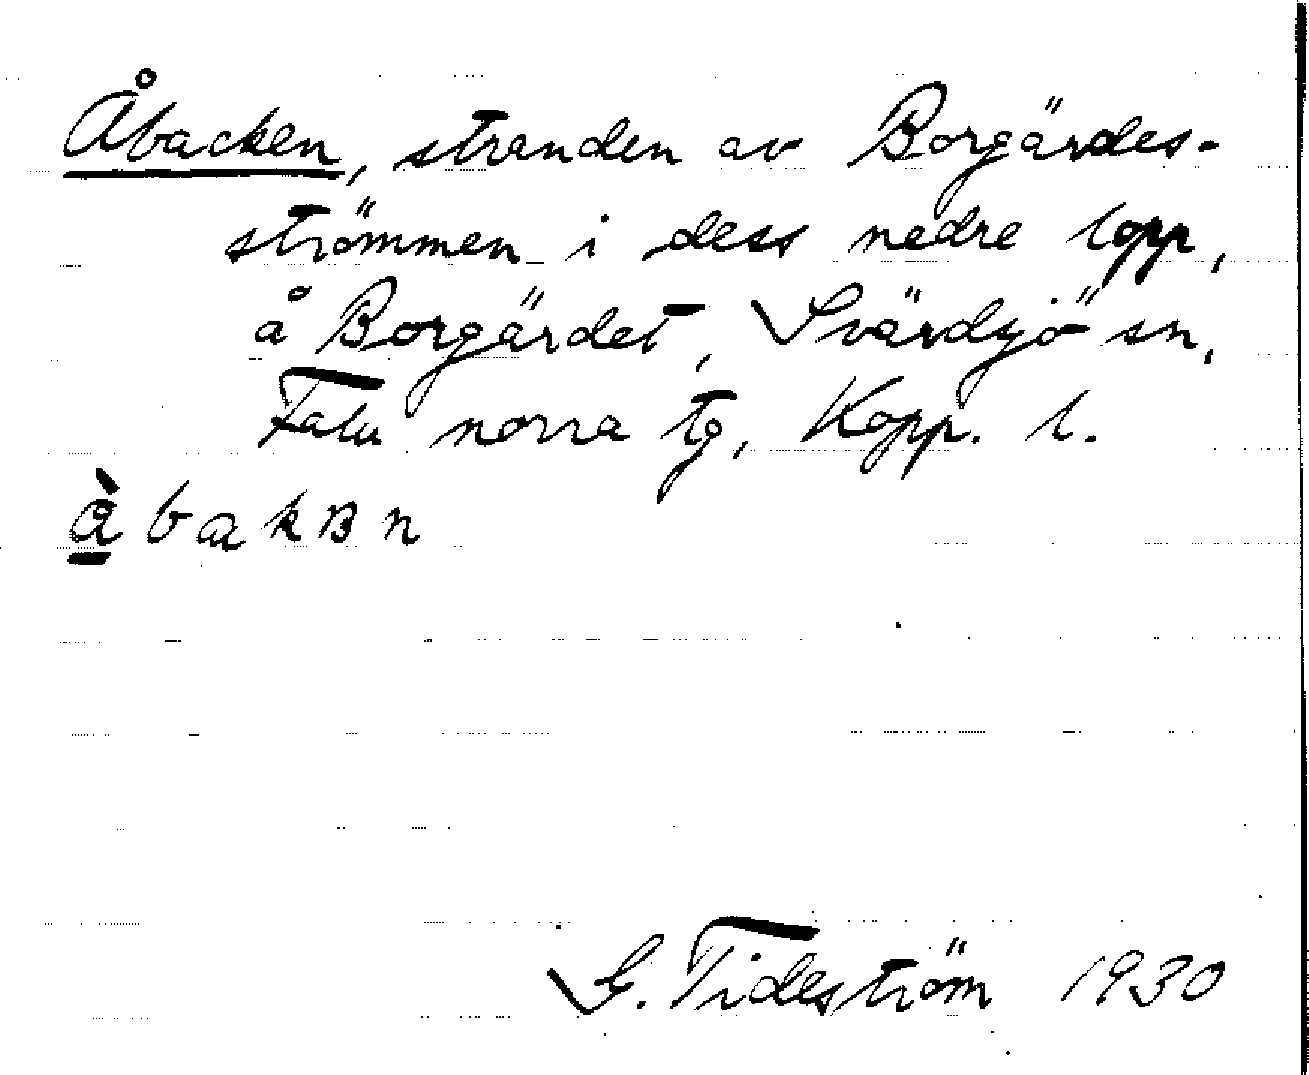 Åbacken, stranden av Borgärdes-
strömmen i dess nedre lopp,
å Borgärdet, Svärdsjö sn,
Falu norra tg, Kopp. l.
G. Tideström 1930